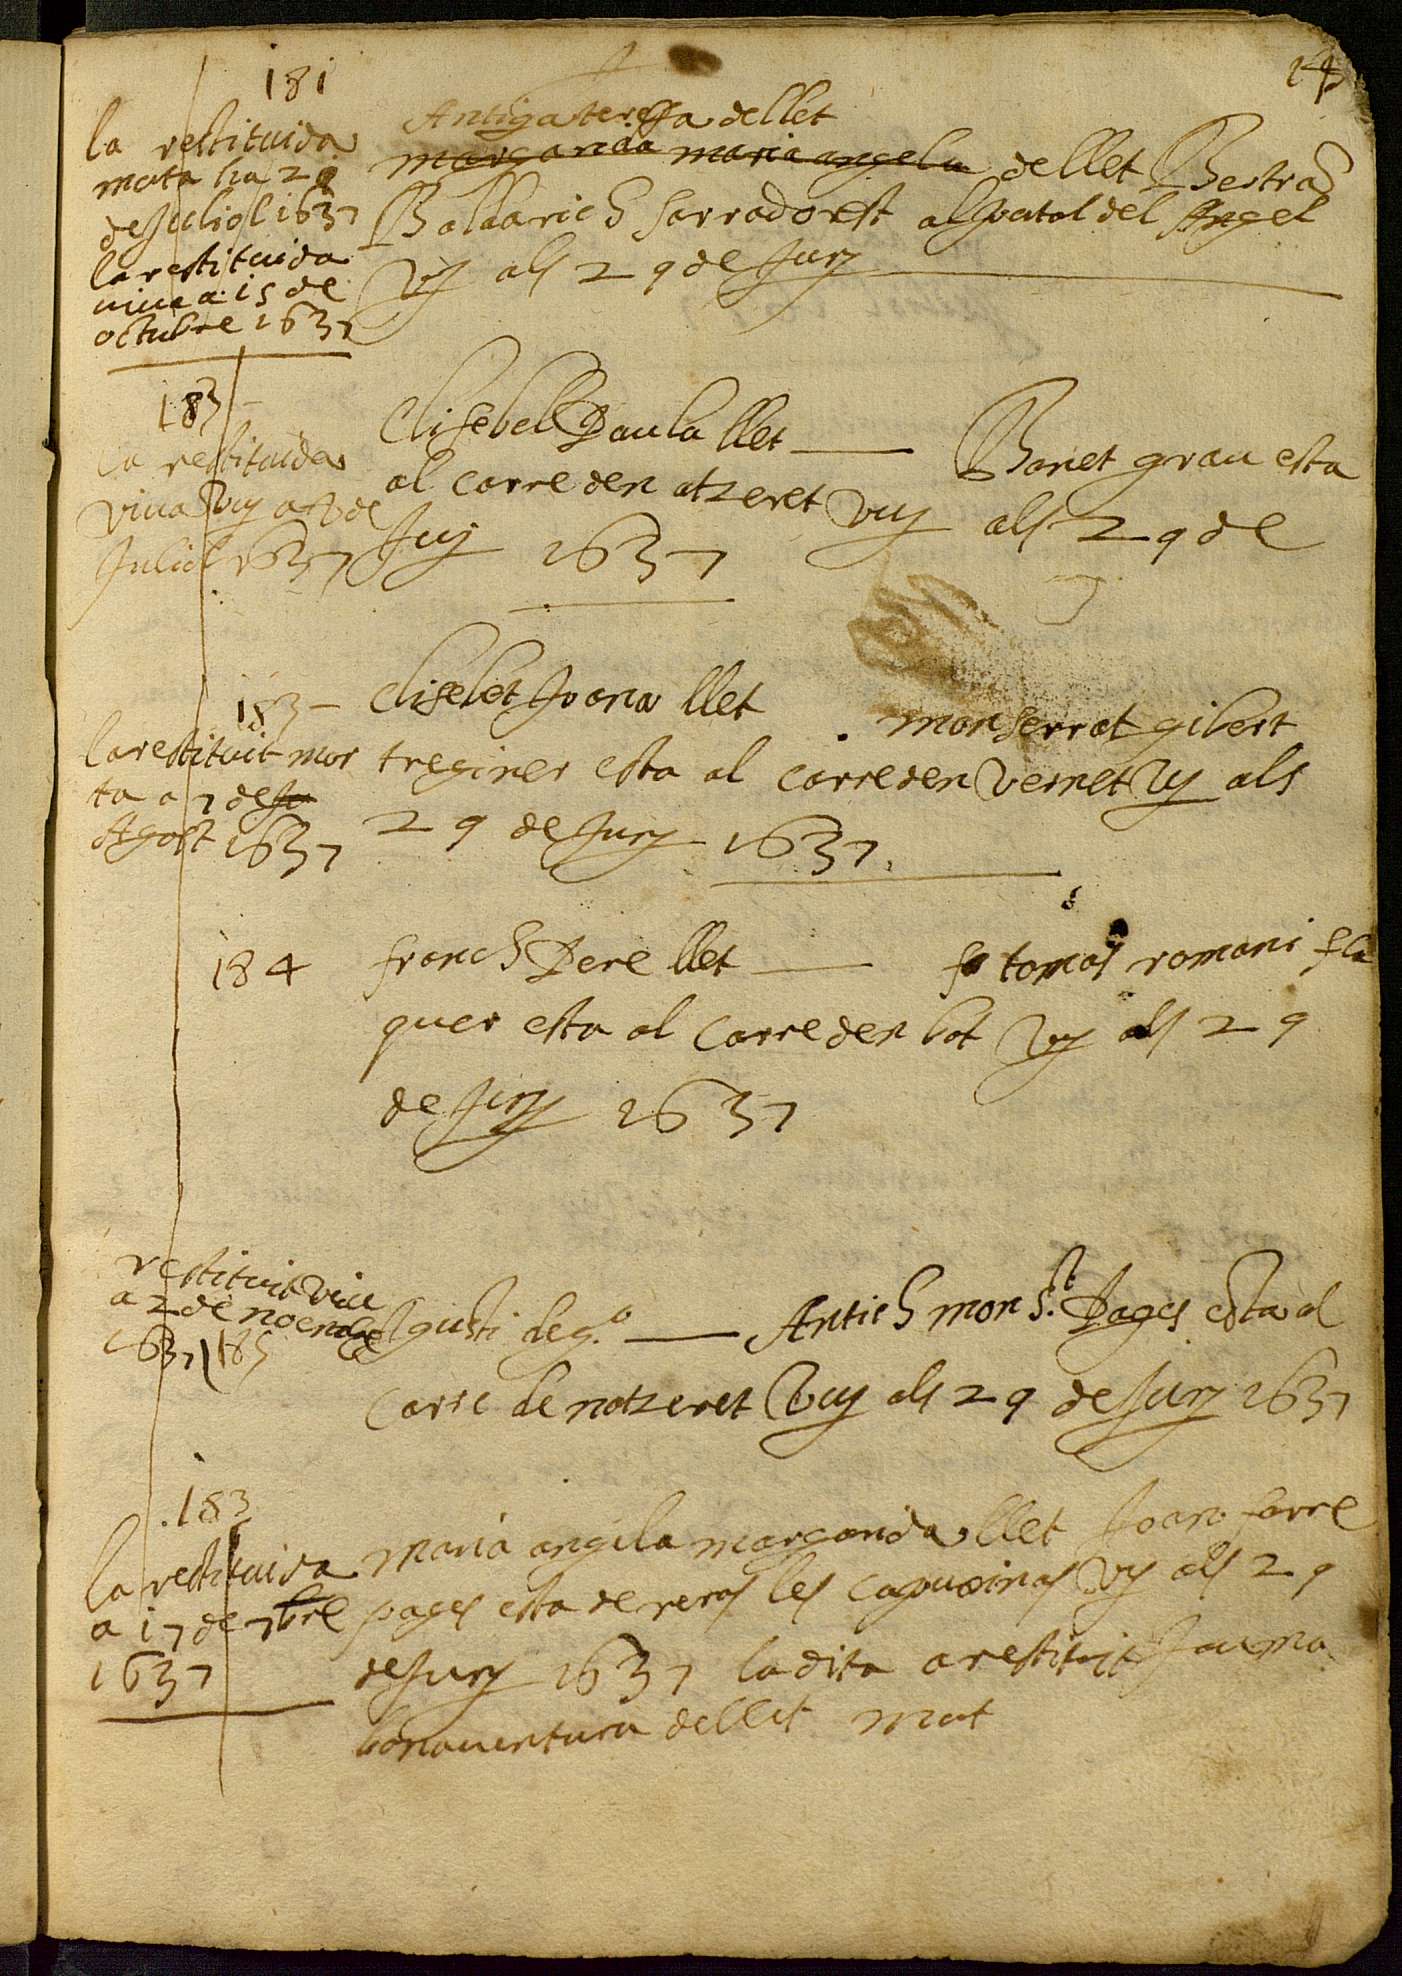 181
la restituida
morta ha 29
de Juliol 1637
la restituida
viua a 15 de
octubre 1637
Antiga teresa de llet
margarida maria angela de llet Bertra
Baldarich serrador est al portal del Angel
Vy als 29 de Juny
183
la restituida
viua Vuy a de
Juliol 1637
Elisebel Paula llet Bonet grau esta
al carre den atzeret Vuy als 29 de
Juy 1637
183
la restituit mor
ta a 7 de Ju
Agost 1637
Elisebet Joana llet monserrat gibert
treginer esta al carre den Vernet Vy als
29 de Juny 1637.
184
franch Pere llet fo tomas romani fla
quer esta al carre den bot Vy als 29
de Juny 1637
restituit viu
a 2 de noembre
1637 185
Agusti deg.º Antich mons.t Pages esta al
carre de notzeret Vuy als 29 de Juny 1637
.183
la restituida
a 17 de 7bre
1637
maria angela margarida llet Joan ferre
pages esta de reras les capuxinas Vy als 29
de Juny 1637 la dita a restituit Jauma
bonauentura de llet mort